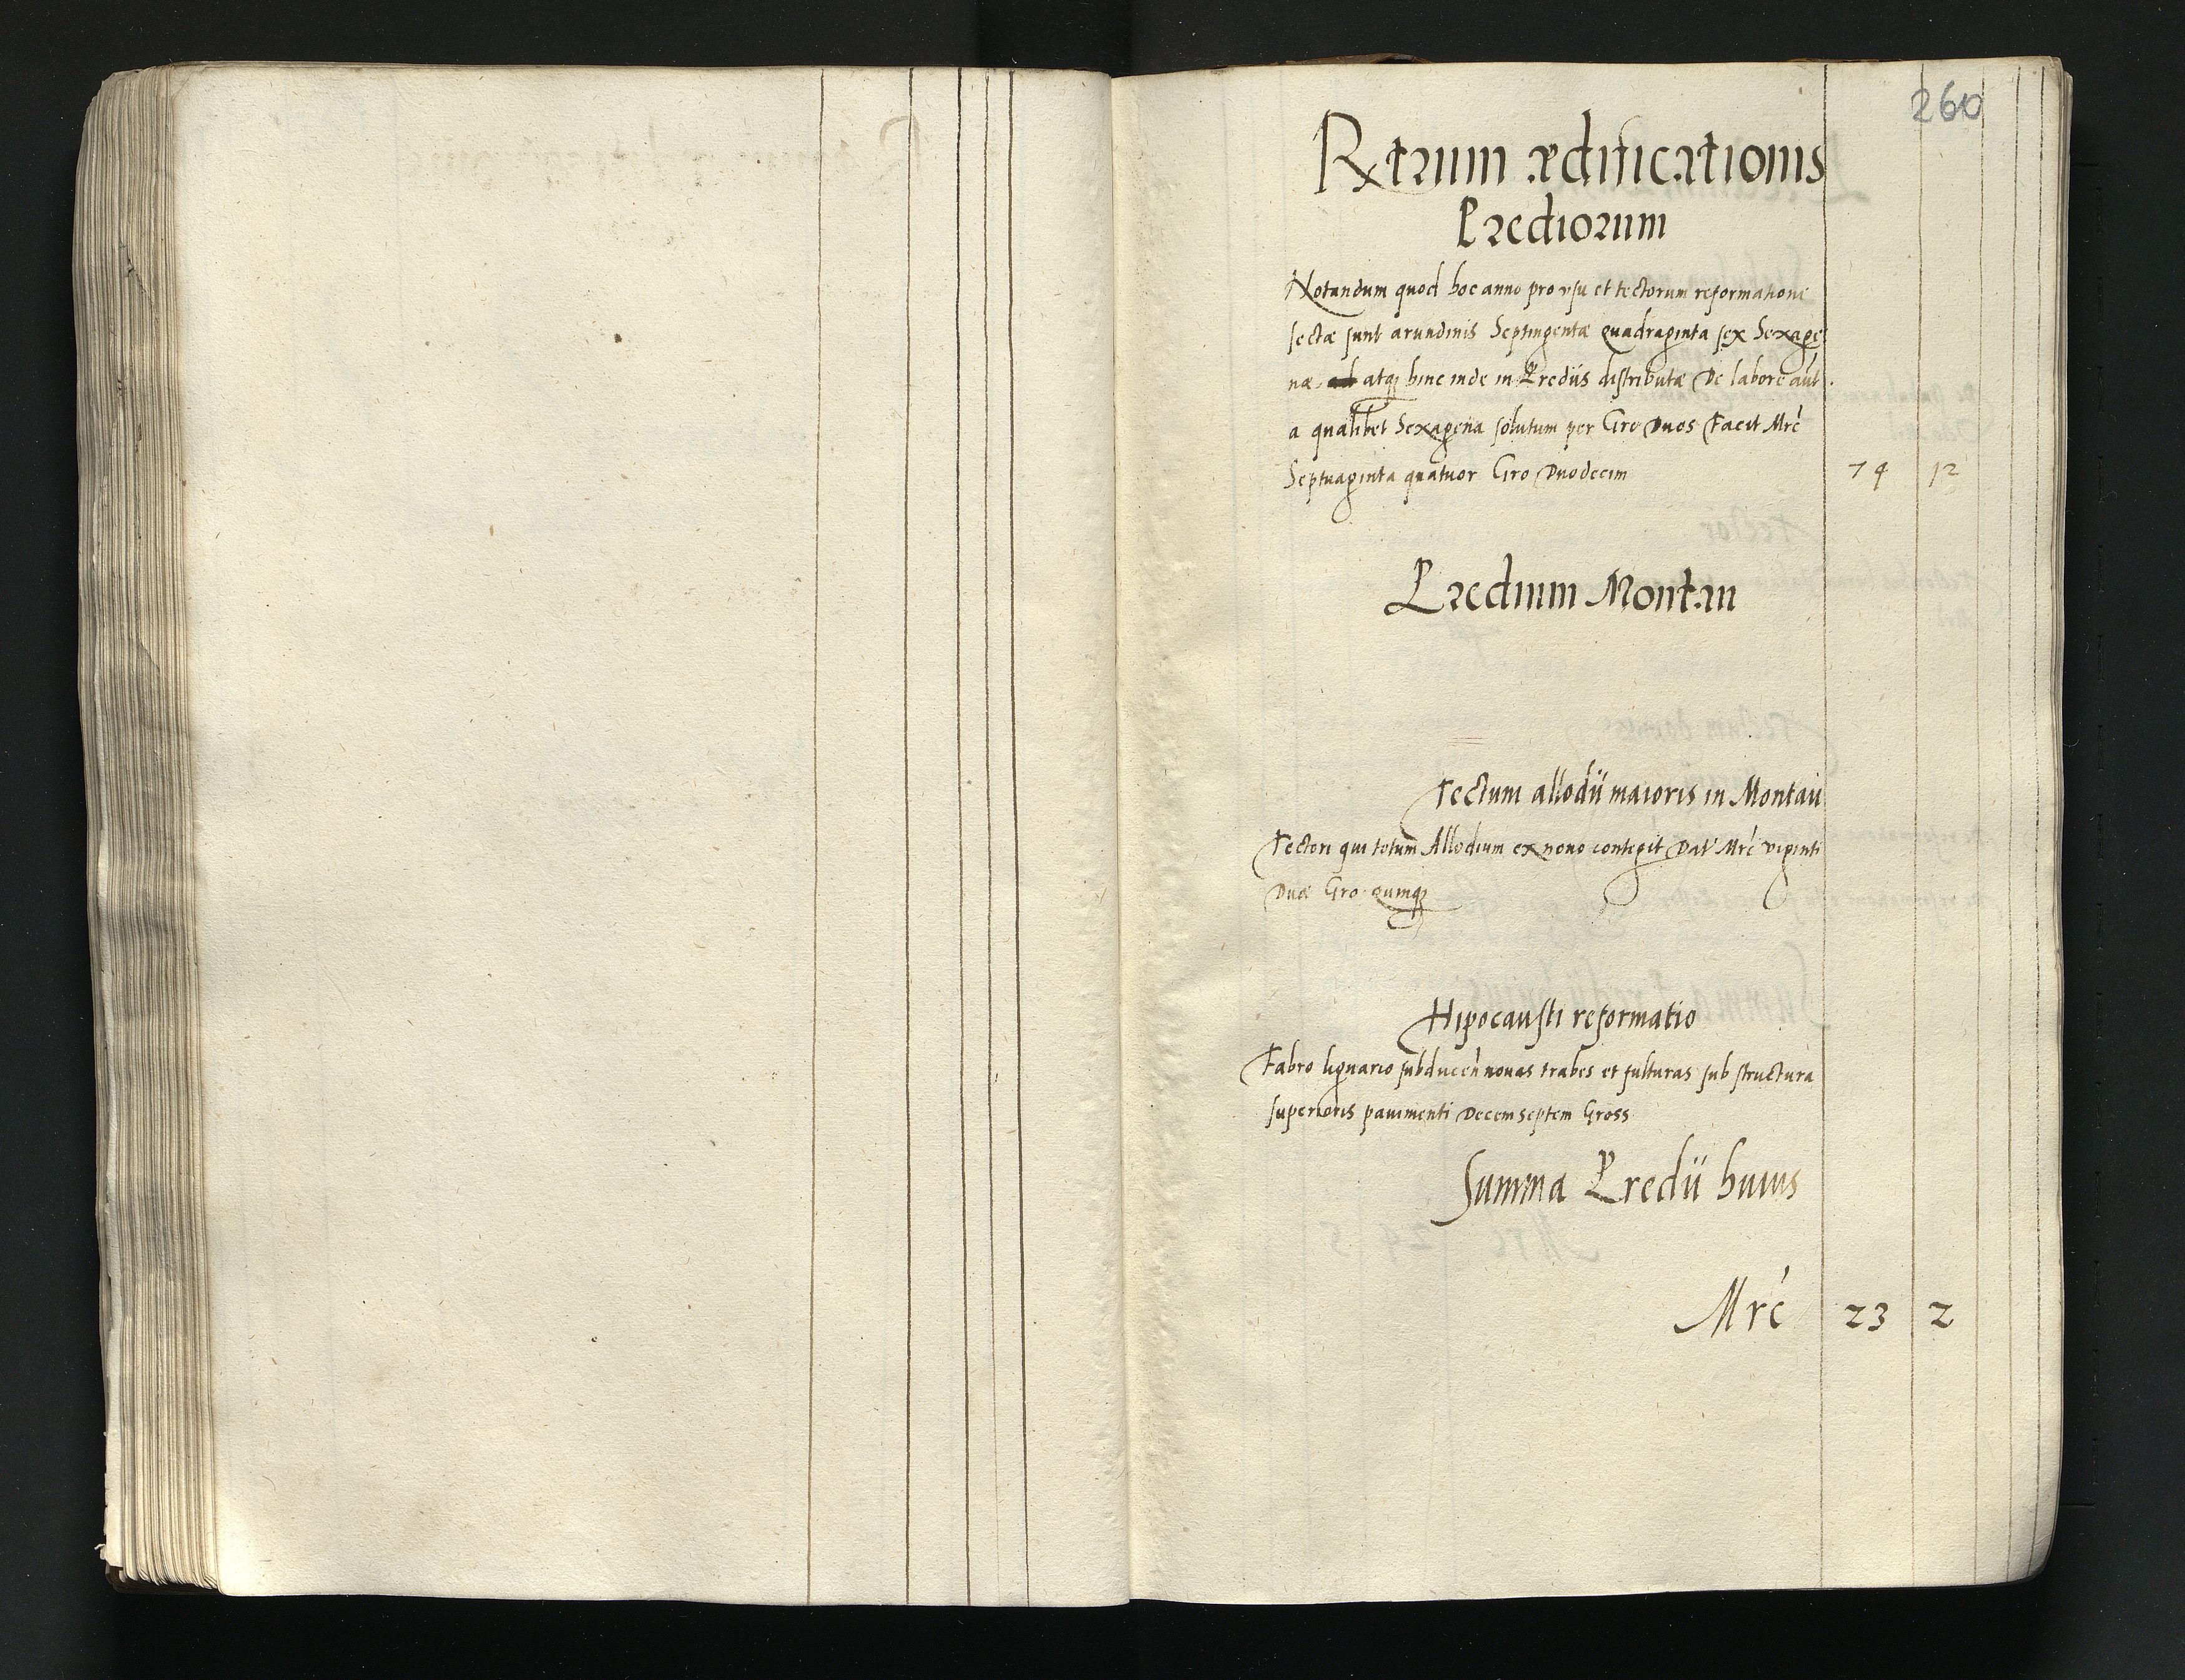 260
Rerum ædificationis
Prediorum
Notandum quod hoc anno pro vsu et tectorum reformatione
sectæ sunt arundinis Septingentæ quadraginta sex Sexage
næ atq hinc inde in Prediis distributæ De labore aut
a qualibet Sexagena solutum per Gro Duos Facit Mrc
Septuaginta quatuor Gro Duodecim 74 12
Predium Montau
Tectum allodii maioris in Montau
Tectori qui totum Allodium ex nono contegit Dat Mrc viginti
Duæ Gro quinq
Hipocausti reformatio
Fabro lignario subducen novas trabes et fulturas sub structura
superioris pauimenti Decemseptem Gross
Summa Predii huius
Mrc 23 2